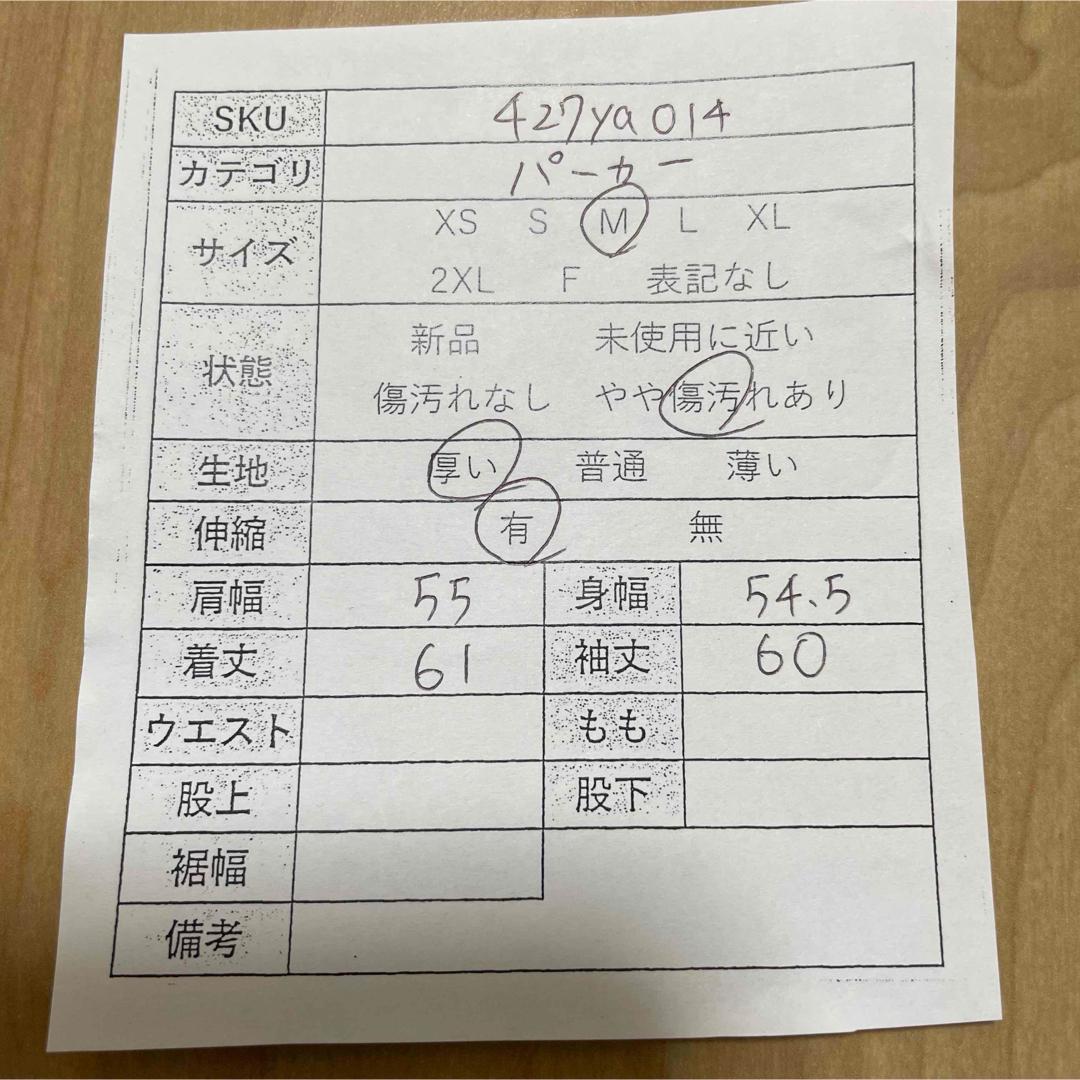 SKU 427ya014
カテゴリ パーカー
サイズ XS S M L XL
2XL F 表記なし
状態 新品 未使用に近い
傷汚れなし やや傷汚れあり
生地 厚い 普通 薄い
伸縮 有 無
肩幅 55 身幅 54.5
着丈 61 袖丈 60
ウエスト もも
股上 股下
裾幅
備考